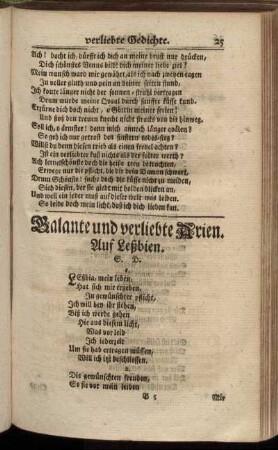 verliebte Gedichte. 25
Ach! dacht ich, dürfft ich dich an meine brust nur drücken,
Dich schönstes Venus bild! dich meiner liebe ziel!
Mein wunsch ward mir gewährt, als ich nach zweyen tagen
In voller gluth und pein an deiner seiten stund,
Ich konte länger nicht der flammen
Drum wurde meine Quaal durch küsse kund.
Erzürne dich doch nicht, o Göttin meiner seelen!
Und zeuch den treuen knecht nicht straffe von dir hinweg.
Soll ich, o ärmster! denn mich annoch länger quälen?
So geh ich nur getrost den finstern todes-steg?
Wilst du denn diesen trieb als einen frevel achten?
Ist ein verliebter kuß nichts als der sünden werth?
Ach
Erwege nur die pflicht, die dir dein Damon schwert.
Drum Schönste! suche doch die küsse nicht zu meiden,
Sieh diesen, der sie giebt mit holden blicken an,
Und weil ein jeder muß auf dieser welt was leiden,
So leide doch mein licht, daß ich dich lieben kan.
Galante und verliebte Arien.
Auf Leßbien.
S. D.
1.
LEßbia, mein leben,
Hat sich mir ergeben,
In gewünschter pflicht,
Ich will bey ihr stehen,
Biß ich werde gehen
Hie aus diesem licht,
Was vor leid
Ich iederzeit
Um sie hab ertragen müssen,
Will ich itzt beschliessen.
2.
Die gewünschten freuden,
So sie vor mein leiden
B 5 Mir